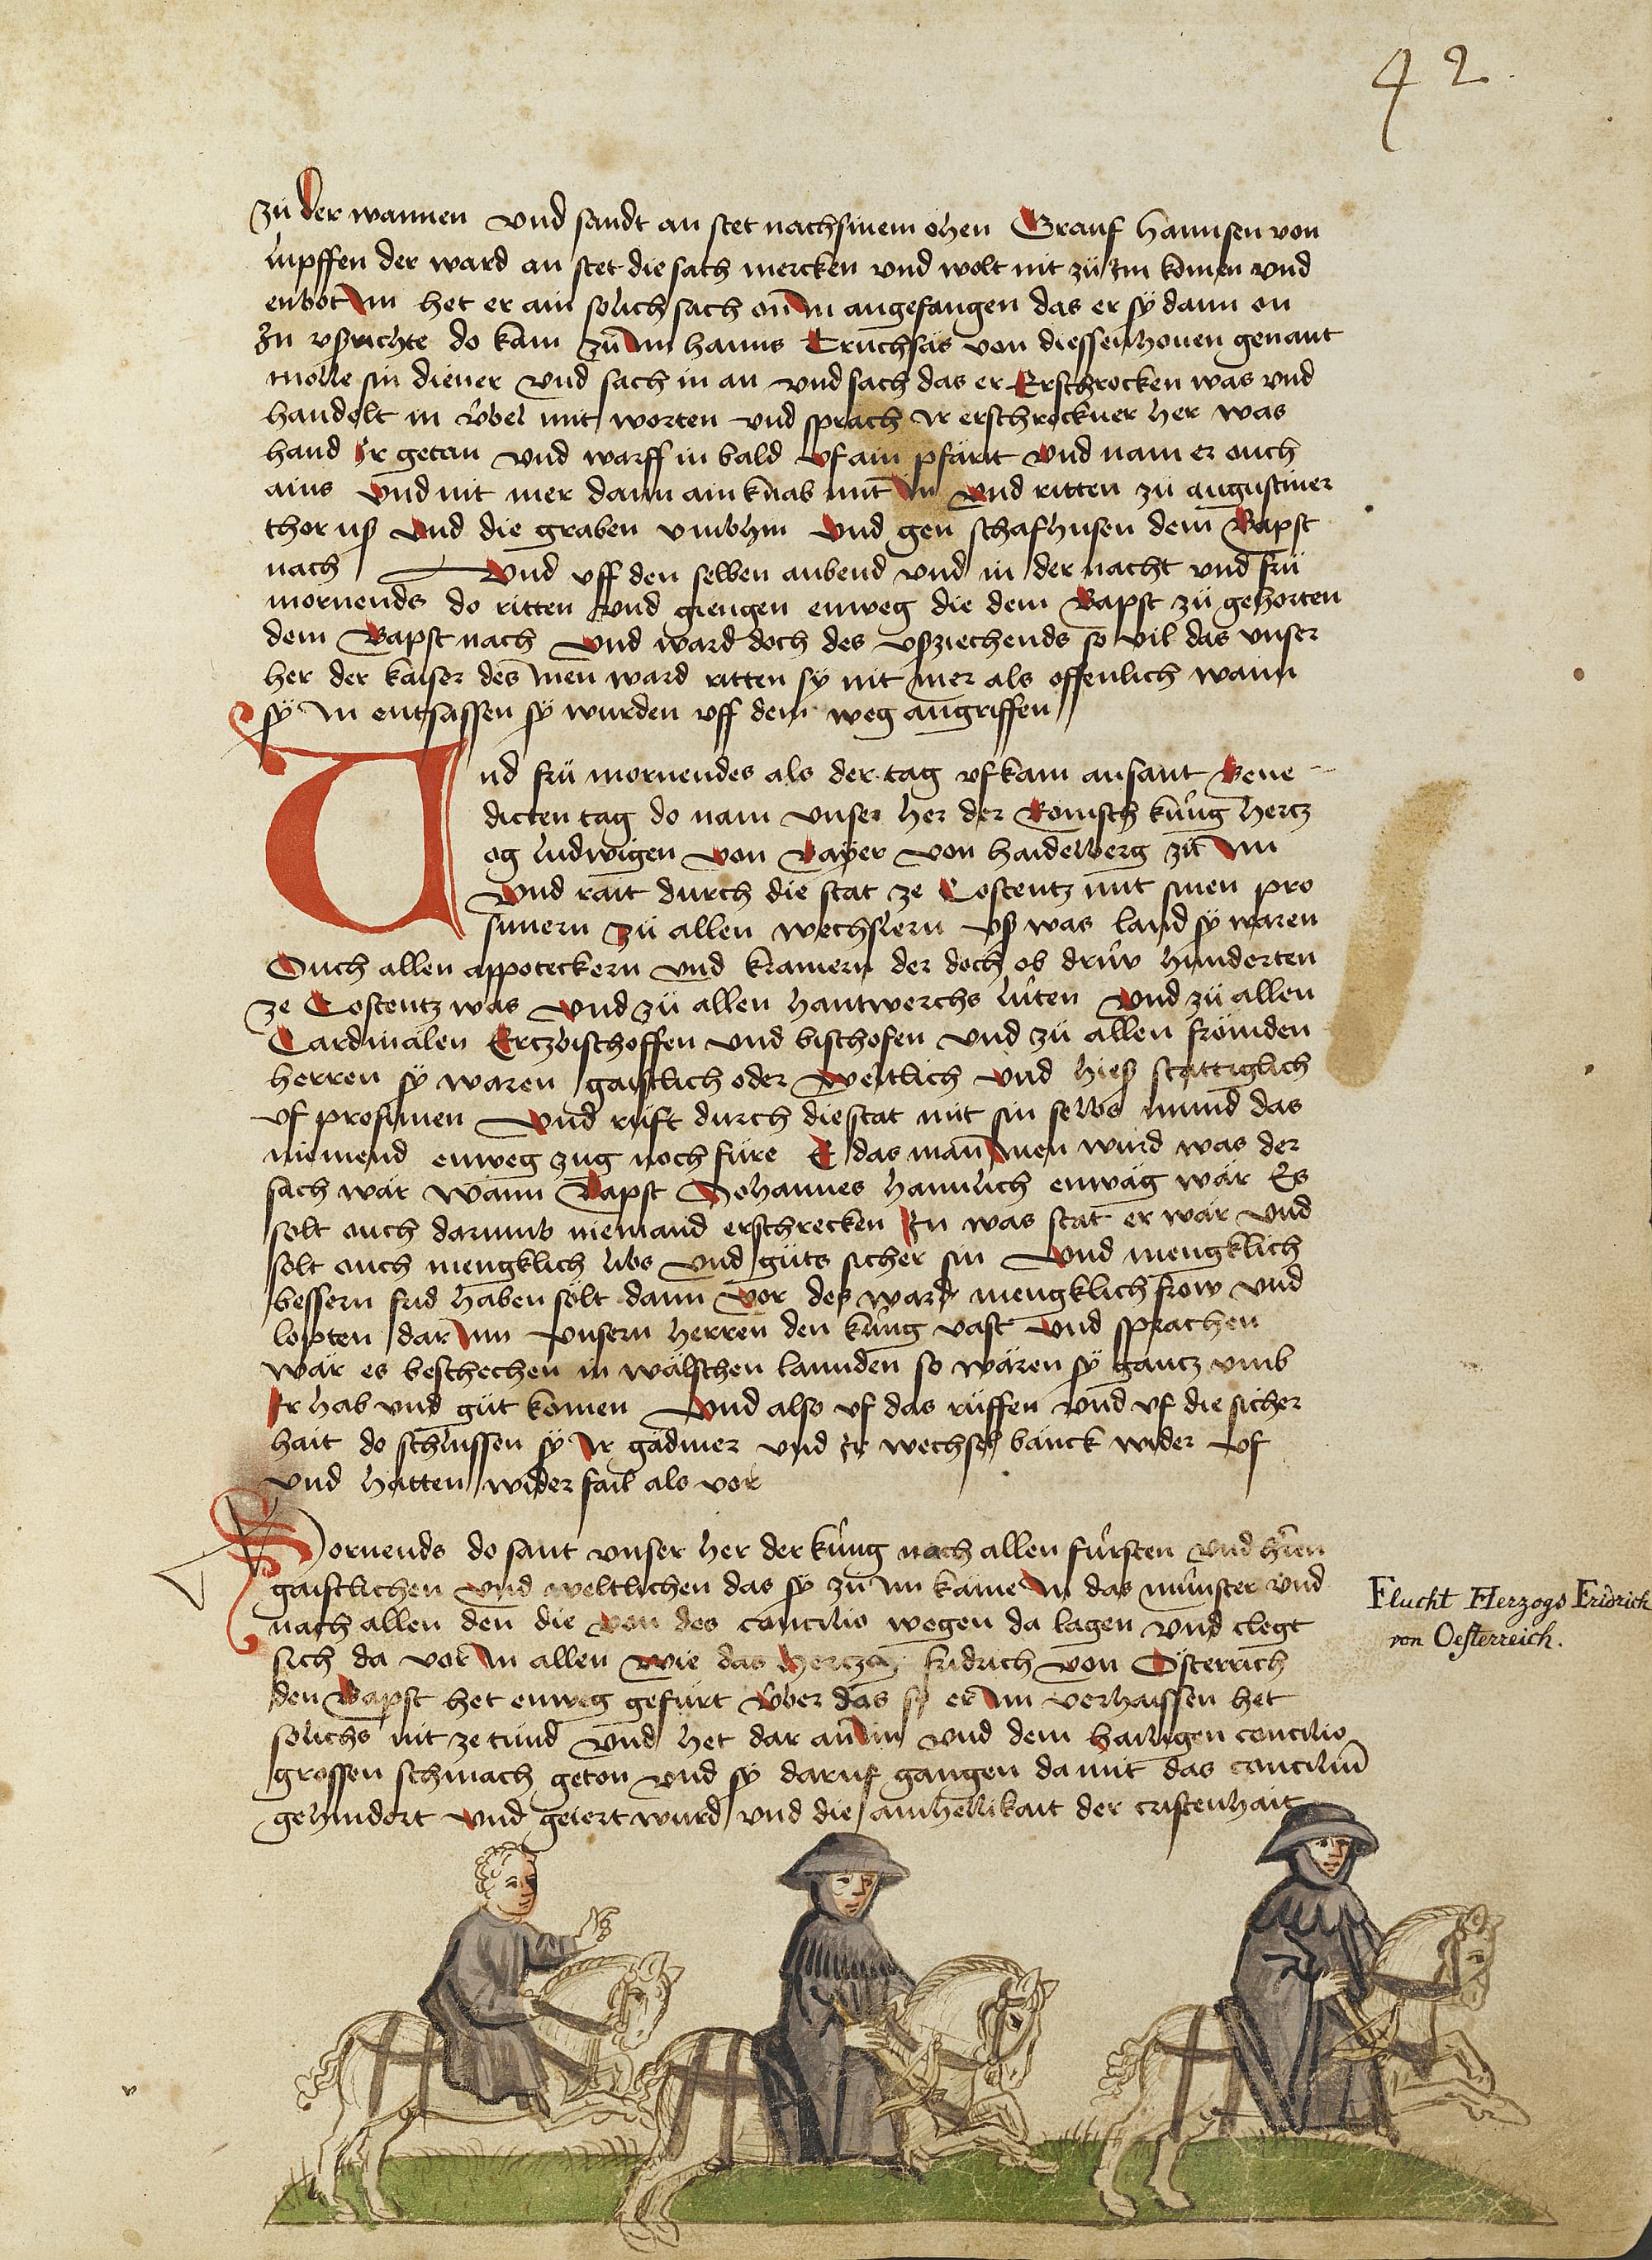 42
zü der wannen vnd sandt an stet nach sinem öhen Grauf hannsen von
lupffen der ward an stet die sach mercken vnd wolt nit zü Im komen vnd
enbot Im het er ain solich sach on In angefangen das er sÿ dann on
In vßrichte do kam zü Im hanns Truchsäs von diessenhouen genant
molle sin diener vnd sach in an vnd sach das er Erschrocken was vnd
handelt in übel mit worten vnd sprach Ir erschrockner her was
hand Ir getan vnd warff in bald vf ain pfärit vnd nam er ouch
ains vnd nit mer dann ain knab mit In vnd ritten zü augustiner
thor uß vnd die graben vmbhin vnd gen schafhusen dem Bapst
nach vnd vff den selben aubend vnd in der nacht vnd frü
mornends do ritten vnd giengen enweg die dem Bapst zü gehorten
dem Bapst nach vnd ward doch des vßziechends so vil das vnser
her der kaiser des Inen ward ritten sÿ nit mer als offenlich wann
sÿ In entsassen sÿ wurden vff dem weg angriffen
Und frü mornendes als der tag vf kam an sant Bene
dicten tag do nam vnser her der Römisch küng hertz
og ludwigen von Bayer von haidelberg zü Im
vnd rait durch die stat ze Costentz mit sinen pro
sunern zü allen wechslern vß was land sÿ waren
Ouch allen appoteckern vnd kramern der doch ob drüw hunderten
ze Costentz was vnd zü allen hantwerchs lüten vnd zü allen
Cardinälen Ertzbischoffen vnd bischofen vnd zü allen frömden
herren sÿ waren gaistlich oder weltlich vnd hieß stättiglich
vf prosunen vnd rüft durch die stat mit sin selbs mund das
niemend enweg zug noch füre E das man Inen wurd was der
sach wär wann Bapst Johannes haimlich enwäg wär Es
solt ouch darumb niemand erschrecken In was stat er wär vnd
solt ouch mengklich libs vnd güts sicher sin vnd mengklich
bessern frid haben sölt dann vor des ward mengklich frow vnd
lopten dar Inn vnsern herren den küng vast vnd sprachen
wär es beschechen in wälschen lannden so wären sÿ gantz vmb
Ir hab vnd güt komen vnd also vf das rüffen vnd vf die sicher
hait do schlussen sÿ Ir gädmer vnd Ir wechsel bänck wider vf
vnd hatten wider fail als vor
Mornends do sant vnser her der küng nach allen fürsten vnd hren
gaistlichen vnd weltlichen das sÿ zü Im käme In das münster vnd
nach allen den die von des concilio wegen da lagen vnd clegt
sich da vor In allen wie das hertzog fridrich von Österrich
den Bapst het enweg gefürt über das so er Im verhaissen het
solichs nit ze tünd vnd het dar an Im vnd dem hailigen concilio
grossen schmach geton vnd sÿ daruf gangen da mit das conciliū
gehindert vnd geiert wurd vnd die ainhellikait der cristenhait
Flucht Herzogs Fridrich
von Oesterreich.